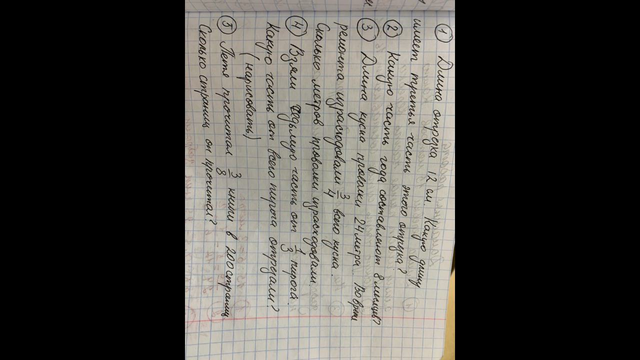 ① Длина отрезка 12 см. Какую длину
имеет третья часть этого отрезка?
② Какую часть года составляют 8 месяцев?
③ Длина куска проволки 24 метра. Во время
ремонта израсходовали 3/4 всего куска.
Сколько метров проволки израсходовали
④ Взяли седьмую часть от 1/3 пирога.
Какую часть от всего пирога отрезали?
(нарисовать)
⑤ Петя прочитал 3/8 книги в 200 страниц
Сколько страниц он прочитал?